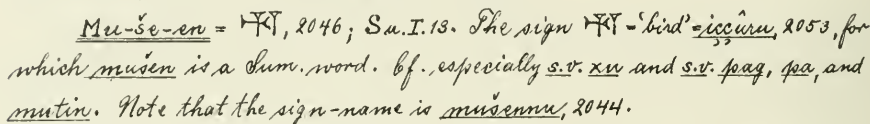 Mu-še-en = 𒄷, 2046; Sa.I.13. The sign 𒄷 = 'bird' = iççûru, 2053, for
which mušen is a Sum. word. Cf. especially s.v. xu and s.v. pag, pa, and
mutin. Note that the sign-name is mušennu, 2044.